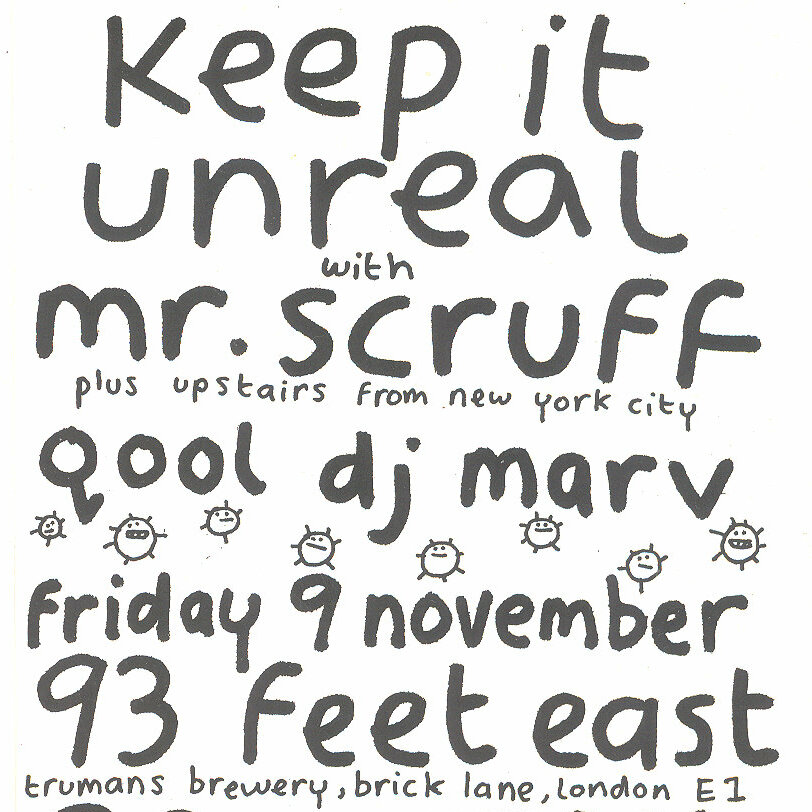 keep it
unreal
with
mr. scruff
plus upstairs from new york city
Qool dj marv
friday 9 november
93 feet east
trumans brewery, brick lane, london E1